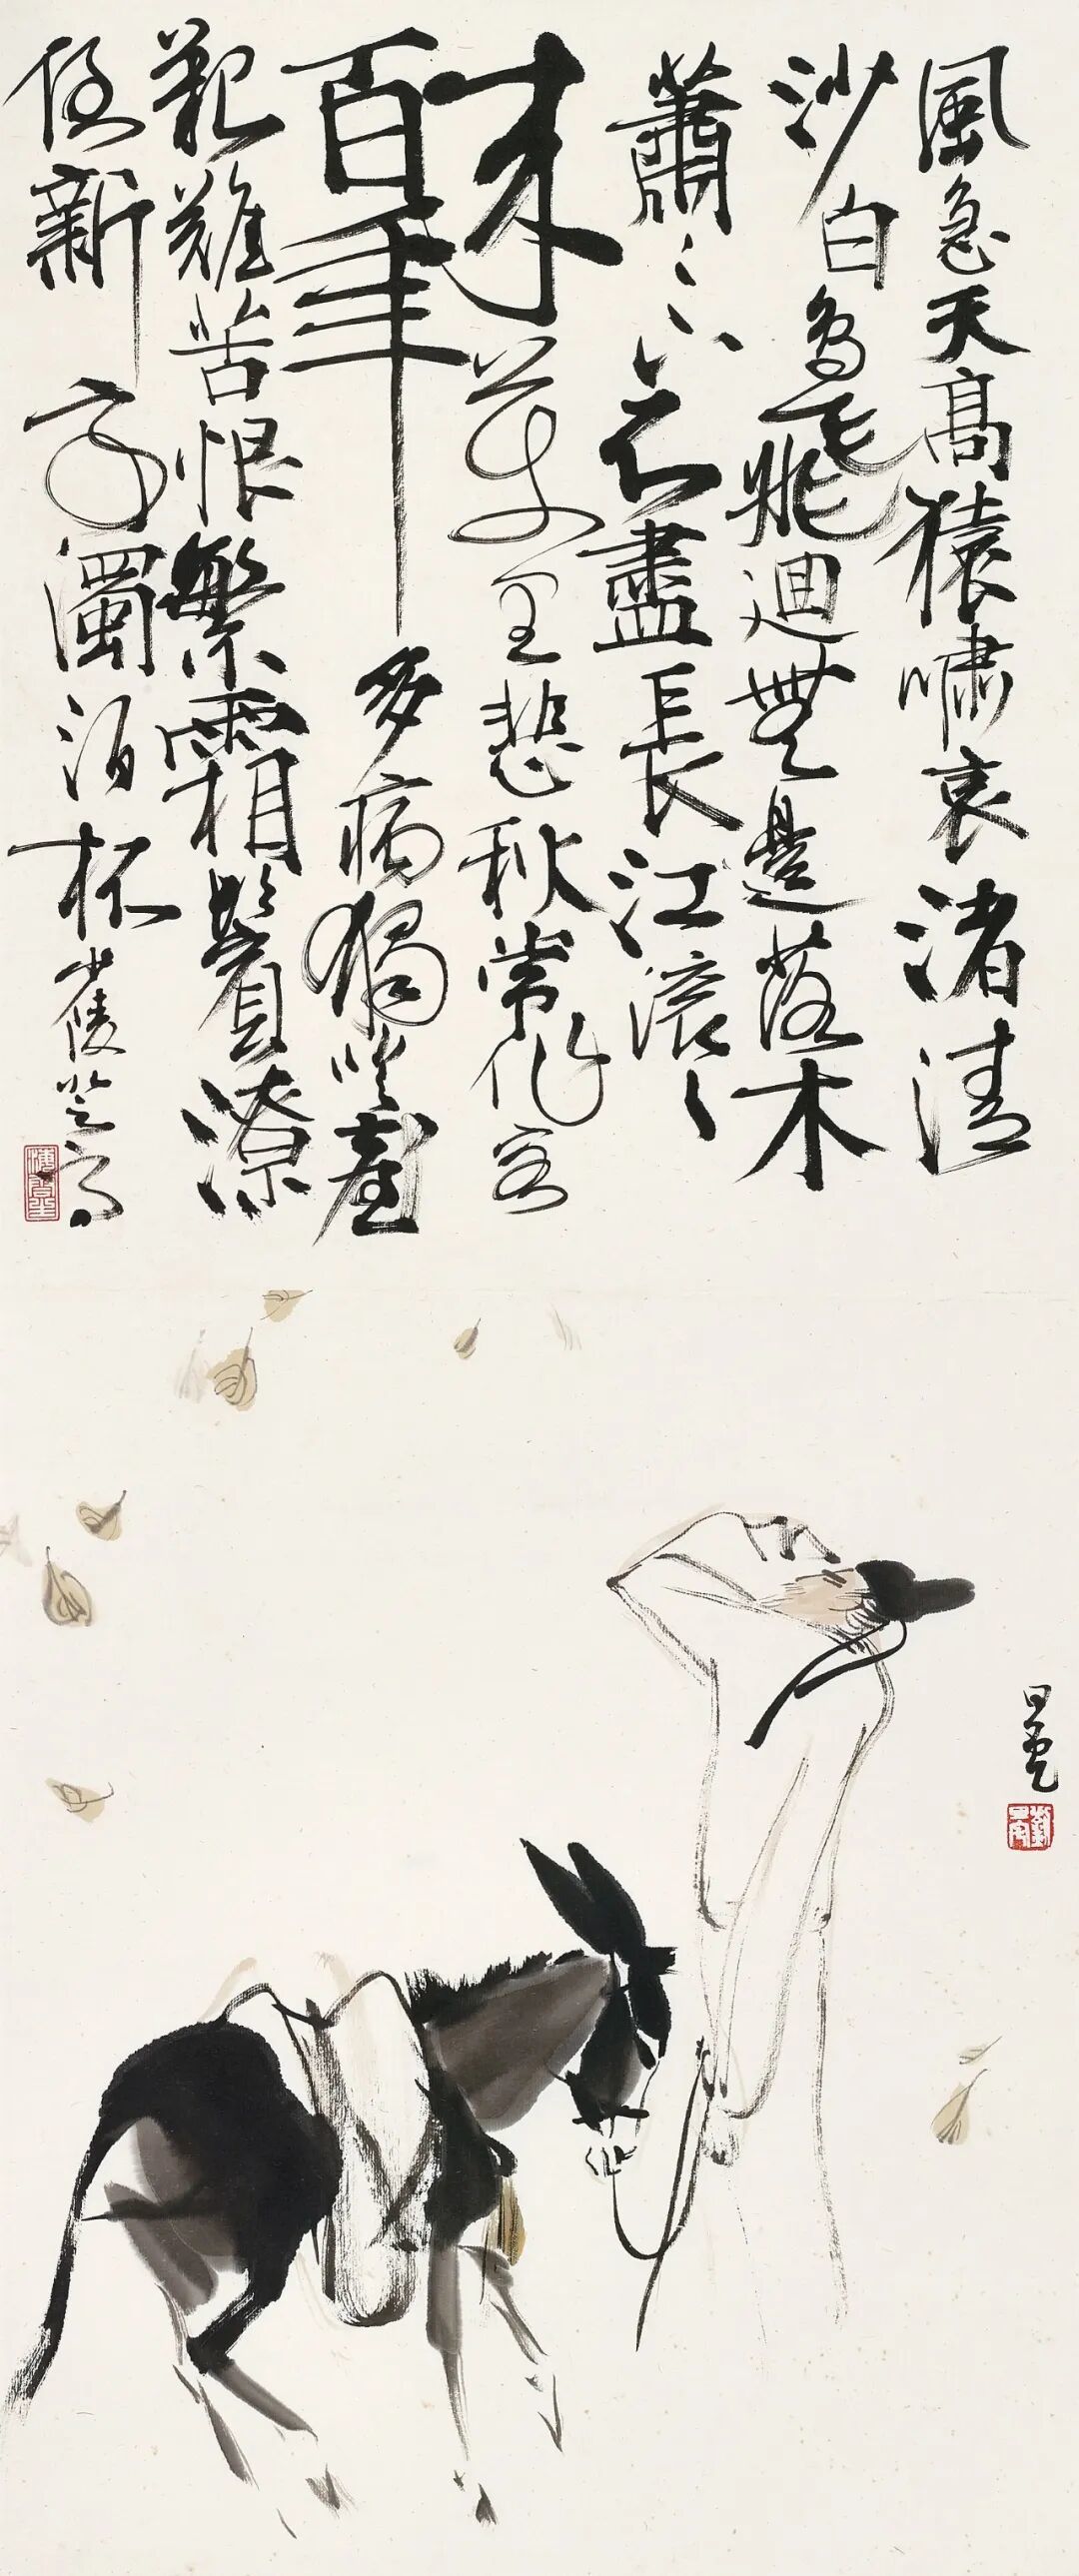 風急天高猿嘯哀渚清
沙白鳥飛迴無邊落木
蕭〻下不盡長江滾〻
来萬里悲秋常作客
百年多病獨登臺
艱難苦恨繁霜鬢潦
倒新亭濁酒杯少陵登高
旦宅